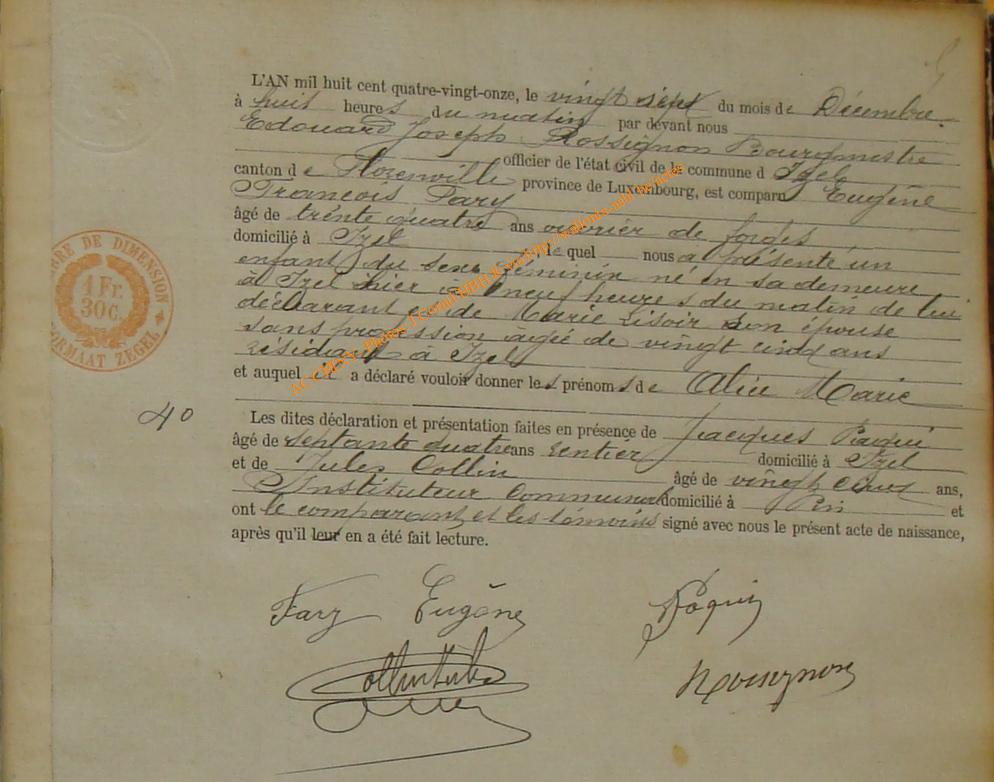 L'AN mil huit cent quatre-vingt-onze, le vingt sept du mois de Décembre
à huit heures du matin par devant nous
Edouard Joseph Rossignon Bourgmestre
officier de l'état civil de la commune d Izel
canton de Florenville province de Luxembourg, est comparu Eugène
François Fary
âgé de trente quatre ans ouvrier de forges
domicilié à Izel lequel nous a présenté un
enfant du sexe féminin né en sa demeure
à Izel hier à neuf heures du matin de lui
déclarant et de Marie Lisoir son épouse
sans profession âgée de vingt cinq ans
résidant à Izel
et auquel il a déclaré vouloir donner les prénoms de Alice Marie
40
Les dites déclaration et présentation faites en présence de Jacques
âgé de septante quatre ans rentier domicilié à Izel
et de Jules Collin âgé de vingt cinq ans,
Instituteur communal domicilié à Pin et
ont le comparant et les témoins signé avec nous le présent acte de naissance,
après qu'il leur en a été fait lecture.
Fary Eugène
Collin Jules
Rossignon
TIMBRE DE DIMENSION
1 Fr.
30C.
FORMAAT ZEGEL